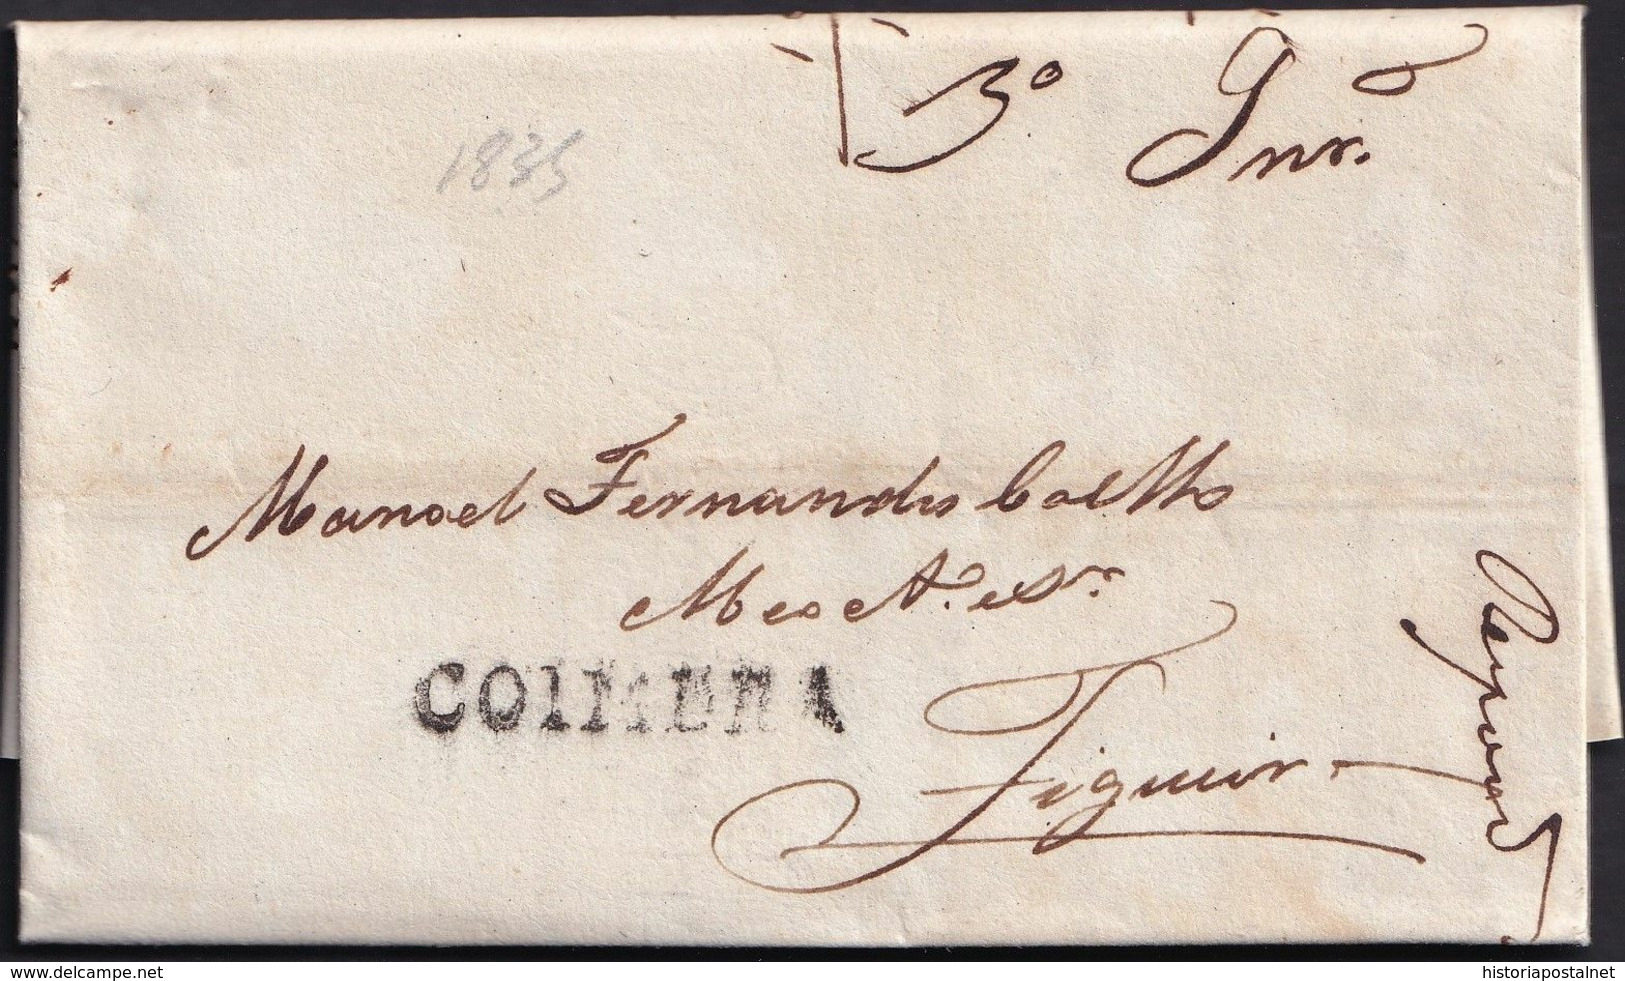 Snr.
1835
Manoel Fernandes Coelho
Meo A.º e Sr.
COIMBRA
Figueir.
www.delcampe.net
historiapostalnet